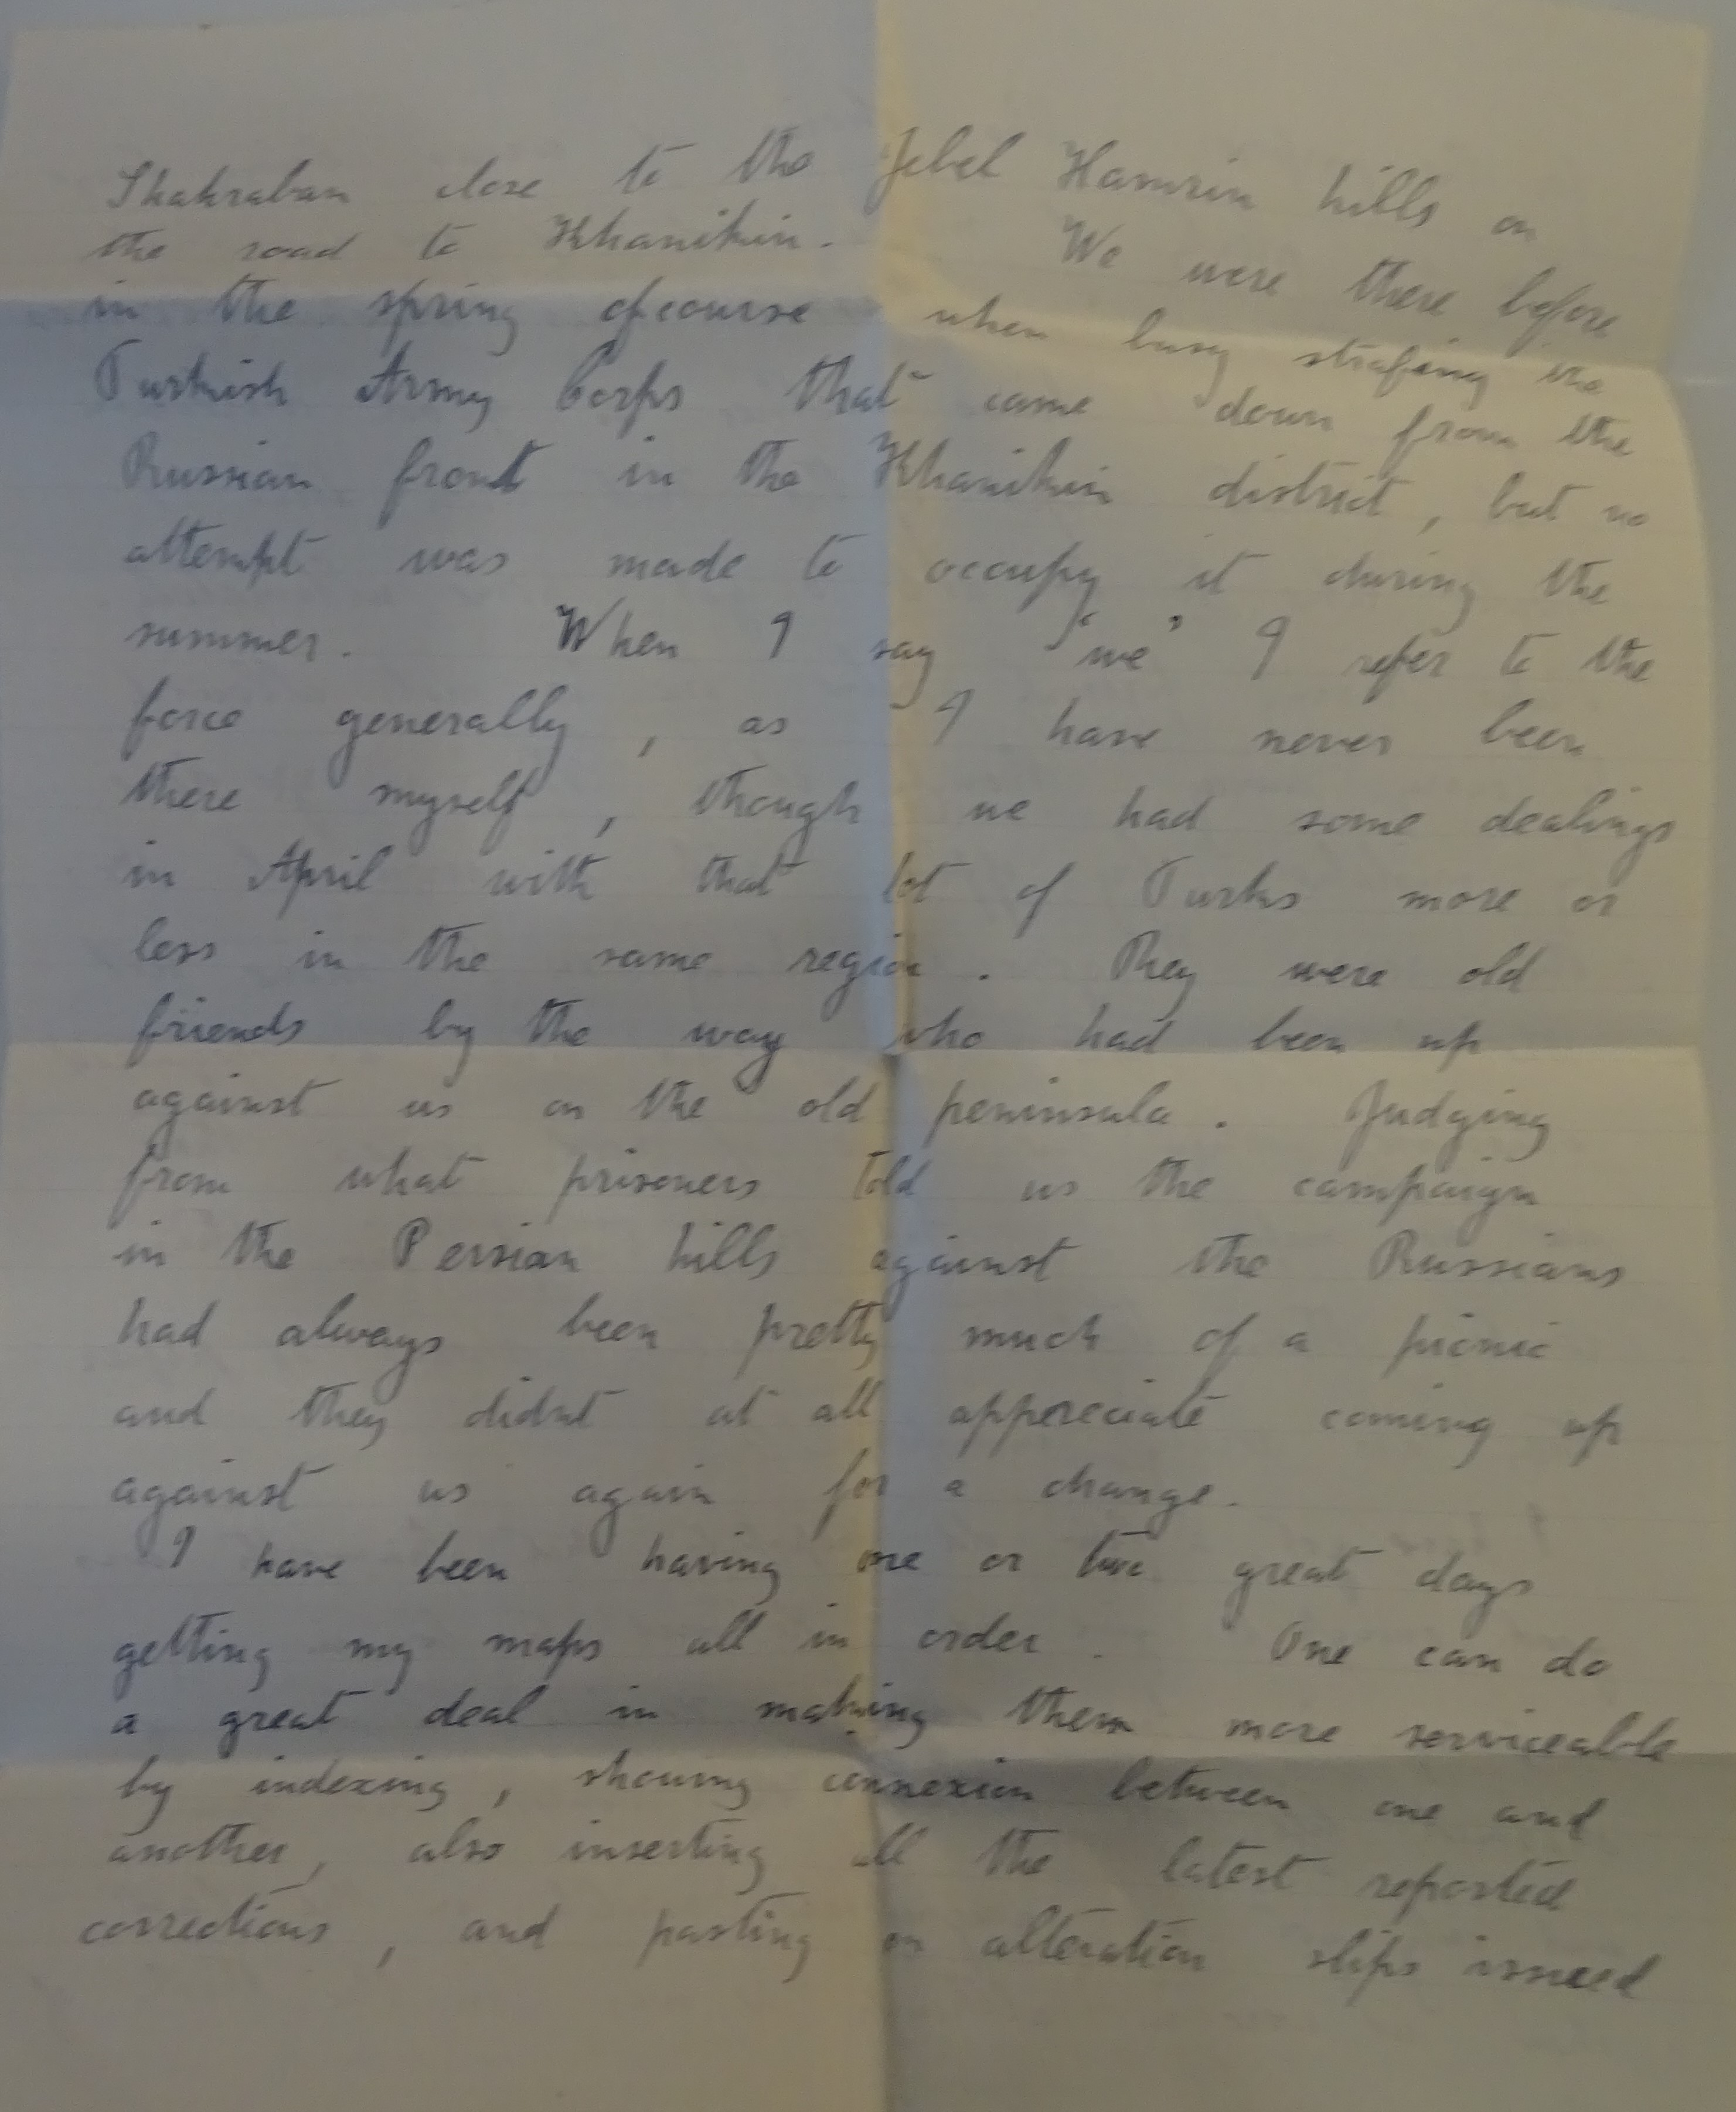 Shahraban close to the Jebel Hamrin hills on
the road to Khanikin. We were there before
in the spring ofcourse when busy strafing the
Turkish Army Corps that came down from the
Russian front in the Khanikin district, but no
attempt was made to occupy it during the
summer. When I say "we" I refer to the
force generally, as I have never been
there myself, though we had some dealings
in April with that lot of Turks more or
less in the same region. They were old
friends by the way who had been up
against us on the old peninsula. Judging
from what prisoners told us the campaign
in the Persian hills against the Russians
had always been pretty much of a picnic
and they didnt at all appreciate coming up
against us again for a change.
I have been having one or two great days
getting my maps all in order. One can do
a great deal in making them more serviceable
by indexing, showing connexion between one and
another, also inserting all the latest reported
corrections, and pasting on alteration slips issued